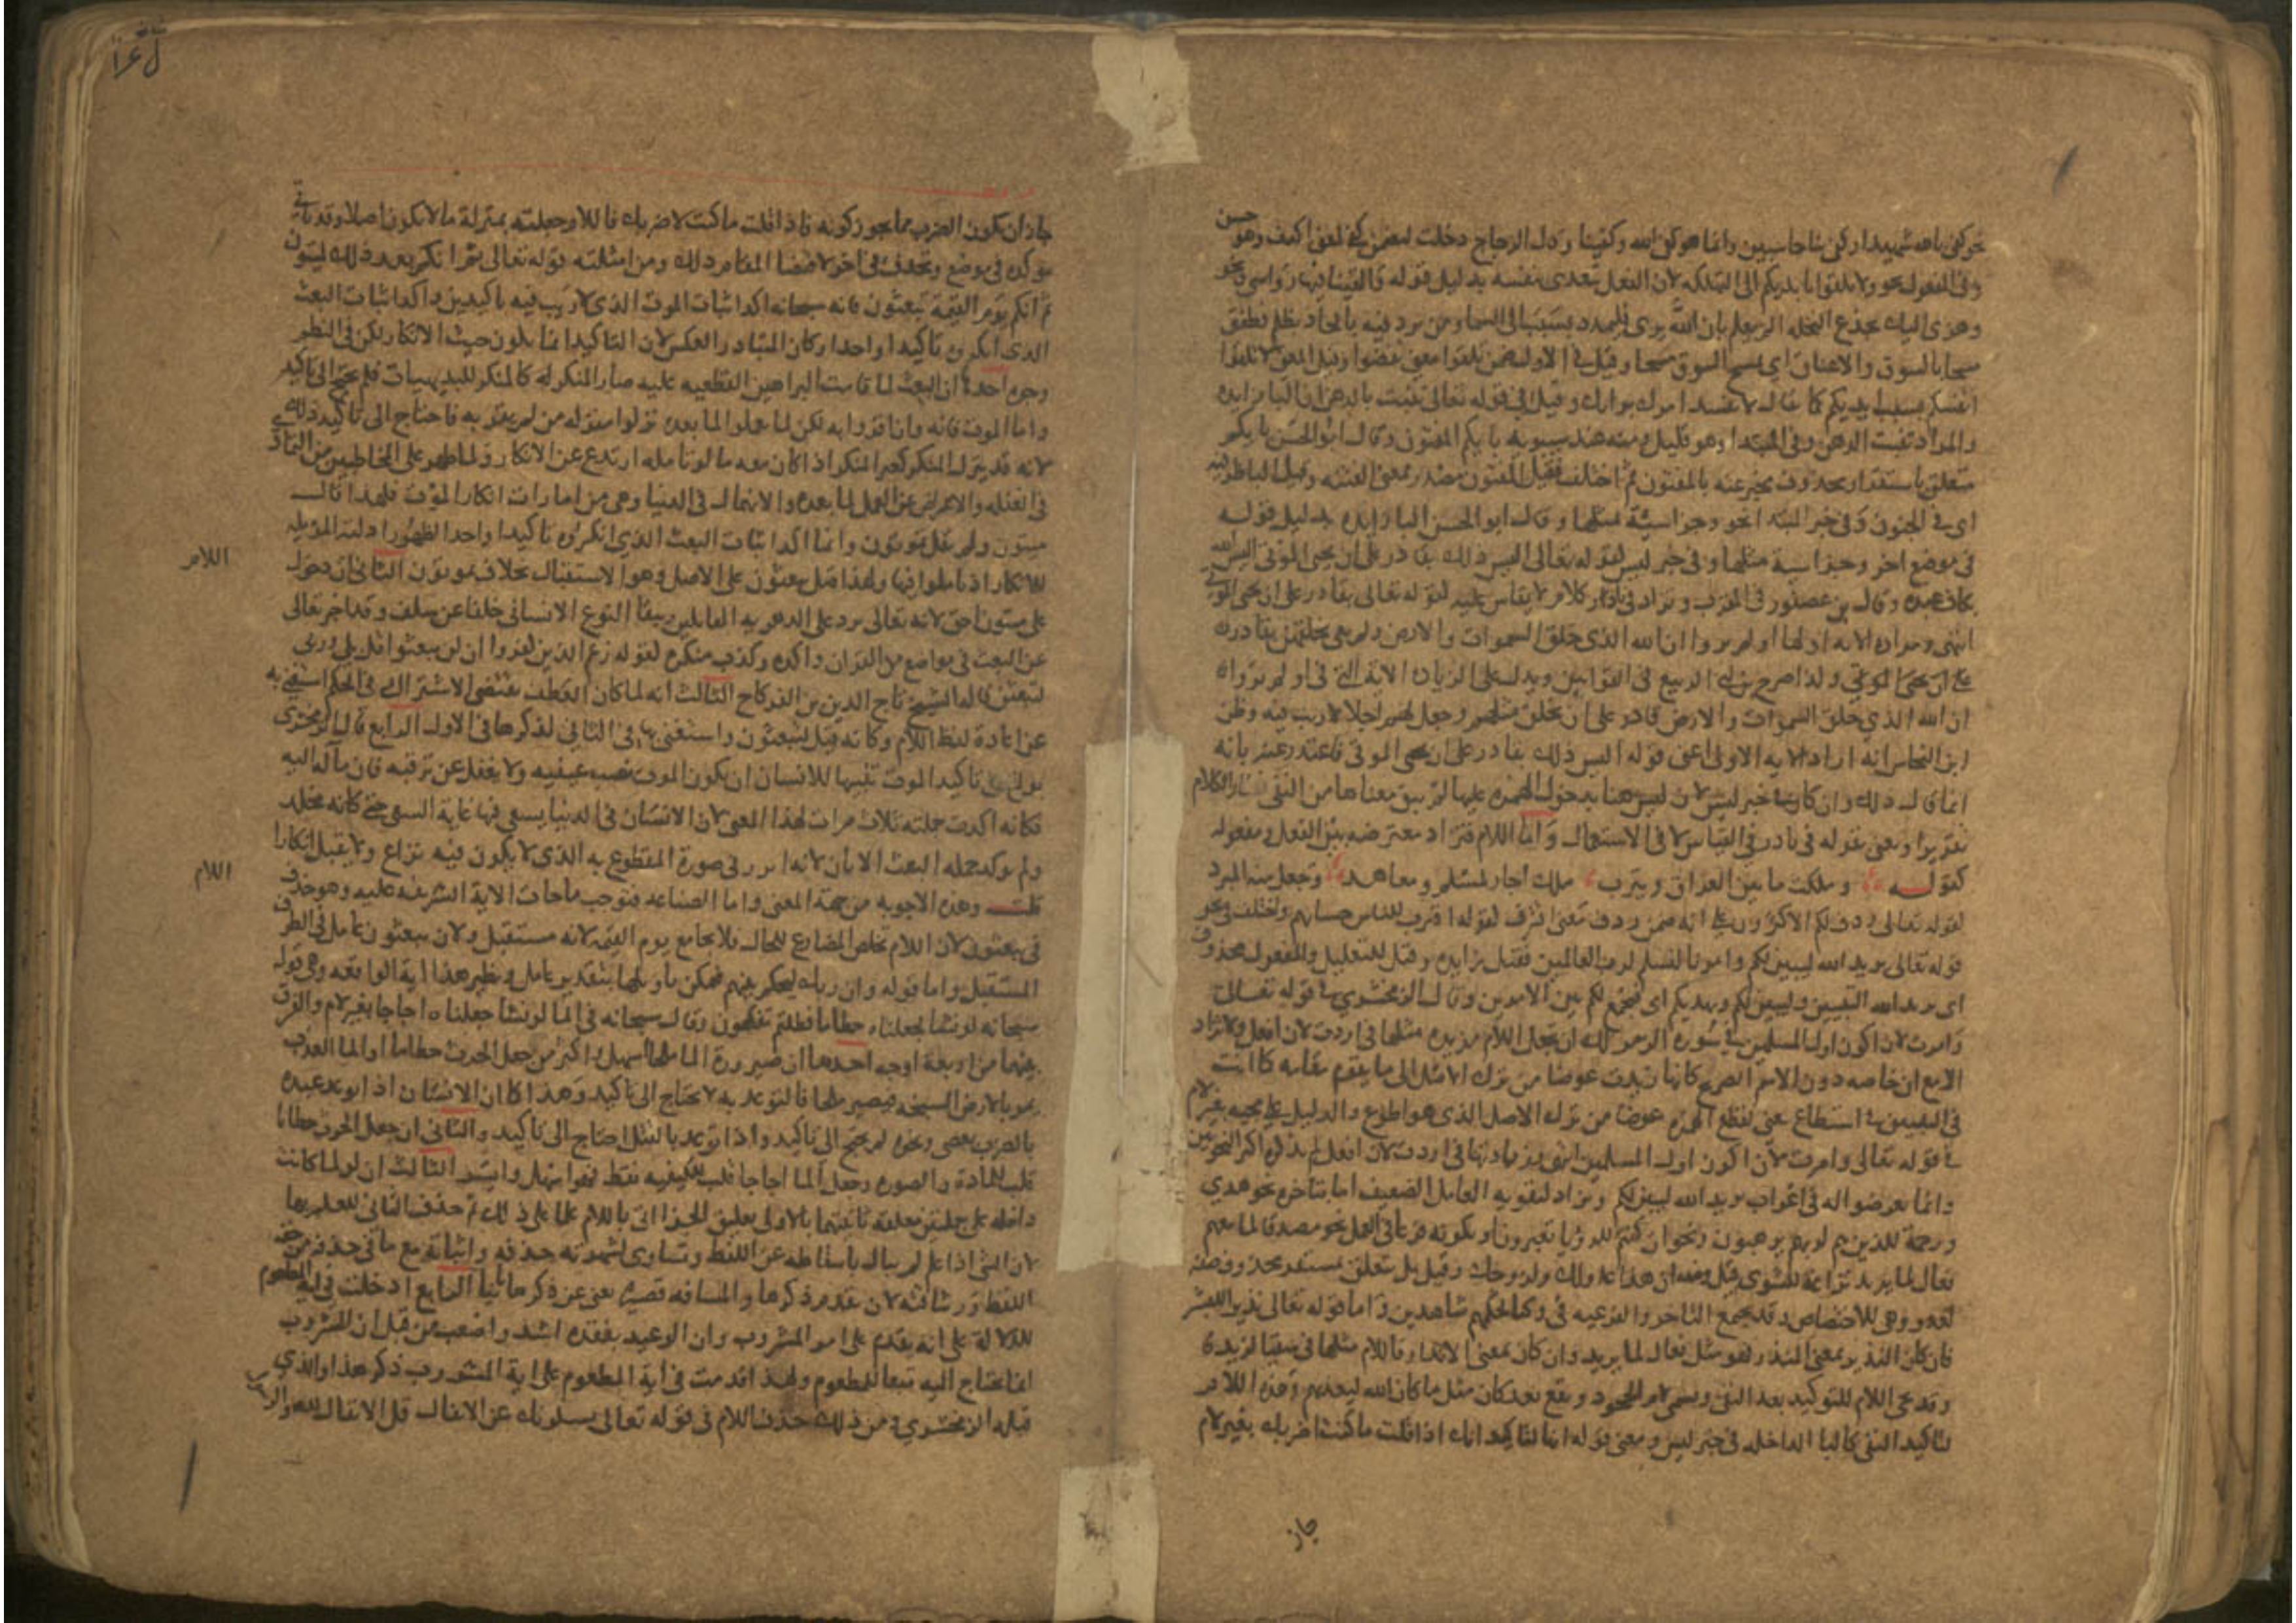 نحو كفى بالله شهيدا وكفى بنا حاسبين وانما هو كفى الله وكفينا وقال الزجاج دخلت لتضمن كفى لمعنى اكتف وهو حسن
وفي المفعول نحو ولا تلقوا بايديكم الى التهلكه لان الفعل يتعدى بنفسه بدليل قوله والقينا فيها رواسي ونحو
وهزى اليك بجذع النخله الم يعلم بان الله يرى فليمدد بسبب الى السماء ومن يرد فيه بالحاد بظلم فطفق
مسحا بالسوق والاعناق اي يمسح السوق مسحا وقيل في الاولى ضمن تلقوا معنى تفضوا وقيل المعنى لا تلقوا
انفسكم بسبب ايديكم كما يقال لا تفسد امرك برايك وقيل في قوله تعالى تنبت بالدهن ان البا زايده
والمراد تنبت الدهن وفي المبتدا وهو قليل ومنه عند سيبويه بايكم المفتون وقال ابو الحسن بايكم
متعلق باستقرار محذوف مخبر عنه بالمفتون ثم اختلف فقيل المفتون مصدر بمعنى الفتنه وقيل البا ظرفيه
اي في الجنون وفي خبر المبتدا نحو وجزا سيئة بمثلها وقال ابو الحسن البا زايده بدليل قوله
في موضع اخر وجزا سيئة مثلها وفي خبر ليس لقوله تعالى اليس ذلك بقادر على ان يحيي الموتى اليس الله
بكاف عبده وقال بن عصفور في المقرب وتزاد في نادر كلام لا يقاس عليه لقوله تعالى بقادر على ان يحيي الموتى
انتهى ومراده الايه اولها اولم يروا ان الله الذي خلق السموات والارض ولم يعي بخلقهن بقادر
على ان يحيي الموتى ولذا صرح به ابن ابي الربيع في القوانين ويدل على الزياده الايه التي في اولم يروا
ان الله الذي خلق السموات والارض قادر على ان يخلق مثلهم وجعل لهم اجلا لا ريب فيه وظن
ابن النحاس انه اراد الايه الاولى اعني قوله اليس ذلك بقادر على ان يحيي الموتى فاعتذر عنه بانه
انما قال ذلك وان كان خبر ليس لان ليس هنا بدخول الهمزه عليها لم يبق معناها من النفي فصار الكلام
تقريرا ويعني بقوله في نادر في القياس لا في الاستعمال واما اللام فتزاد معترضه بين الفعل ومفعوله
كقوله وملكت ما بين العراق ويثرب ملك اجار لمسلم ومعاهد وجعل منه المبرد
قوله تعالى ردف لكم والاكثرون على انه ضمن ردف معنى اقترب لقوله اقترب للناس حسابهم واختلف في نحو
قوله تعالى يريد الله ليبين لكم وامرنا لنسلم لرب العالمين فقيل زايده وقيل للتعليل والمفعول محذوف
اي يريد الله التبيين وليبين لكم ويهديكم اي فيجمع لكم بين الامرين وقال الزمخشري في قوله تعالى
وامرت لان اكون اول المسلمين في سورة الزمر لك ان تجعل اللام مزيده مثلها في اردت لان افعل ولا تزاد
الا مع ان خاصه دون الاسم الصريح كانها زيدت عوضا من ترك الاصل الى ما يقوم مقامه كما اتت
السين في اسطاع يعني بقطع الهمزه عوضا من ترك الاصل الذي هو اطوع والدليل على مجيه بغير لام
في قوله تعالى وامرت ان اكون اول المسلمين انتهى وزيادتها في اردت لان افعل لم يذكره اكثر النحويين
وانما تعرضوا له في اعراب يريد الله ليبين لكم وتزاد لتقويه العامل الضعيف اما بتاخره نحو هدى
ورحمة للذين هم لربهم يرهبون ونحو ان كنتم للرويا تعبرون او بكونه فرعا في العمل نحو مصدقا لما معهم
فعال لما يريد نزاعة للشوى وقيل ومنه ان هذا عدو لك ولزوجك وقيل بل تتعلق بمستقر محذوف صفة
لعدو وهي للاختصاص وقد يجتمع التاخر والفرعيه في وكنا لحكمهم شاهدين واما قوله تعالى نذيرا للبشر
فان كان النذير بمعنى المنذر فهو مثل فعال لما يريد وان كان بمعنى الانذار فاللام مثلها في سقيا لزيد
وقد تجي اللام للتوكيد بعد النفي وتسمى لام الجحود وتقع بعد كان مثل ما كان الله ليعذبهم وهذه اللام
لتاكيد النفي كالبا الداخله في خبر ليس ومعنى قوله انها للتاكيد انك اذا قلت ما كنت اضربك بغير لام
جاز
جاز ان يكون الضرب مما يجوز كونه فاذا قلت ما كنت لاضربك فاللام جعلته بمنزلة ما لا يكون اصلا وقد تاتي
موكده في موضع وتحذف في اخر لاقتضا المقام ذلك ومن امثلته قوله تعالى ثم انكم بعد ذلك لميتون
ثم انكم يوم القيمة تبعثون فانه سبحانه اكد اثبات الموت الذي لا ريب فيه تاكيدين واكد اثبات البعث
الذي انكروه تاكيدا واحدا وكان المتبادر العكس لان التاكيد انما يكون حيث الانكار لكن في النظر
وجوه احدها ان البعث لما قامت البراهين القطعيه عليه صار المنكر له كالمنكر للبديهيات فلم يحتج الى تاكيد
واما الموت فانه وان اقروا به لكن لما لم يعملوا لما بعده نزلوا منزلة من لم يقر به فاحتاج الى تاكيد ذلك
لانه قد ينزل المنكر كغير المنكر اذا كان معه ما لو تامله ارتدع عن الانكار ولما ظهر على المخاطبين من التمادي
في الغفله والاعراض عن العمل لما بعده والانهماك في الدنيا وهي من امارات انكار الموت فلهذا قال
ميتون ولم يقل تموتون وانما اكد اثبات البعث الذي انكروه تاكيدا واحدا لظهور ادلته المزيله
للانكار اذا تاملوا فيها ولهذا قيل يبعثون على الاصل وهو الاستقبال بخلاف تموتون الثاني ان دخول اللام
على ميتون احق لانه تعالى يرد على الدهريه القايلين ببقا النوع الانساني خلفا عن سلف وقد اخبر تعالى
عن البعث في مواضع من القران واكده وكذب منكره لقوله زعم الذين كفروا ان لن يبعثوا قل بلى وربي
لتبعثن قاله الشيخ تاج الدين بن الفركاح الثالث انه لما كان العطف يقتضي الاشتراك في الحكم استغنى به
عن اعادة لفظ اللام وكانه قيل لتبعثون واستغنى بها في الثاني لذكرها في الاول الرابع قال الزمخشري
بولغ في تاكيد الموت تنبيها للانسان ان يكون الموت نصب عينيه ولا يغفل عن ترقبه فان مآله اليه
فكانه اكدت جملته ثلاث مرات لهذا المعنى لان الانسان في الدنيا يسعى فيها غاية السعي حتى كانه مخلد
ولم يوكد جمله البعث الا بان لانه ابرز في صورة المقطوع به الذي لا يكون فيه نزاع ولا يقبل انكارا
قلت وهذه الاجوبه من جهة المعنى واما الصناعه فتوجب ما جات الاية الشريفه عليه وهو حذف اللام
في تبعثون لان اللام تخلص المضارع للحال فلا يجامع يوم القيمه لانه مستقبل ولان تبعثون عامل في الظرف
المستقبل واما قوله وان ربك ليحكم بينهم فيمكن تاويلها بتقدير عامل ونظير هذا اية الواقعه وهي قوله
سبحانه لو نشا لجعلناه حطاما فظلتم تفكهون وقال سبحانه في الما لو نشا جعلناه اجاجا بغير لام والفرق
بينهما من اربعة اوجه احدها ان صيرورة الما ملحا اسهل واكثر من جعل الحرث حطاما اذ الما العذب
يمر بالارض السبخه فيصير ملحا فالتوعد به لا يحتاج الى تاكيد وهذا كما ان الانسان اذا توعد عبده
بالضرب بعصى ونحوه لم يحتج الى تاكيد واذا توعد بالقتل احتاج الى تاكيد والثاني ان جعل الحرث حطاما
قلب للمادة والصوره وجعل الما اجاجا قلب للكيفيه فقط فهو اسهل وايسر الثالث ان لو لما كانت
داخله على جملتين معلقه ثانيتهما بالاولى تعليق الجزا اتى باللام علما على ذلك ثم حذف الثاني للعلم بها
لان الشي اذا علم لم يبال باسقاطه عن اللفظ وتساوى لشهرته حذفه واثباته مع ما في حذفه من خفة
اللفظ ورشاقته لان تقدم ذكرها والمسافه قصيره يغني عن ذكرها ثانيا الرابع ادخلت في اية المطعوم
للدلالة على انه يقدم على امر المشروب وان الوعيد بفقده اشد واصعب من قبل ان المشروب
انما يحتاج اليه تبعا للمطعوم ولهذا قدمت في اية المطعوم على اية المشروب ذكر هذا والذي
قبله الزمخشري ومن ذلك حذف اللام في قوله تعالى يسلونك عن الانفال قل الانفال لله والرسول
اللام
اللام